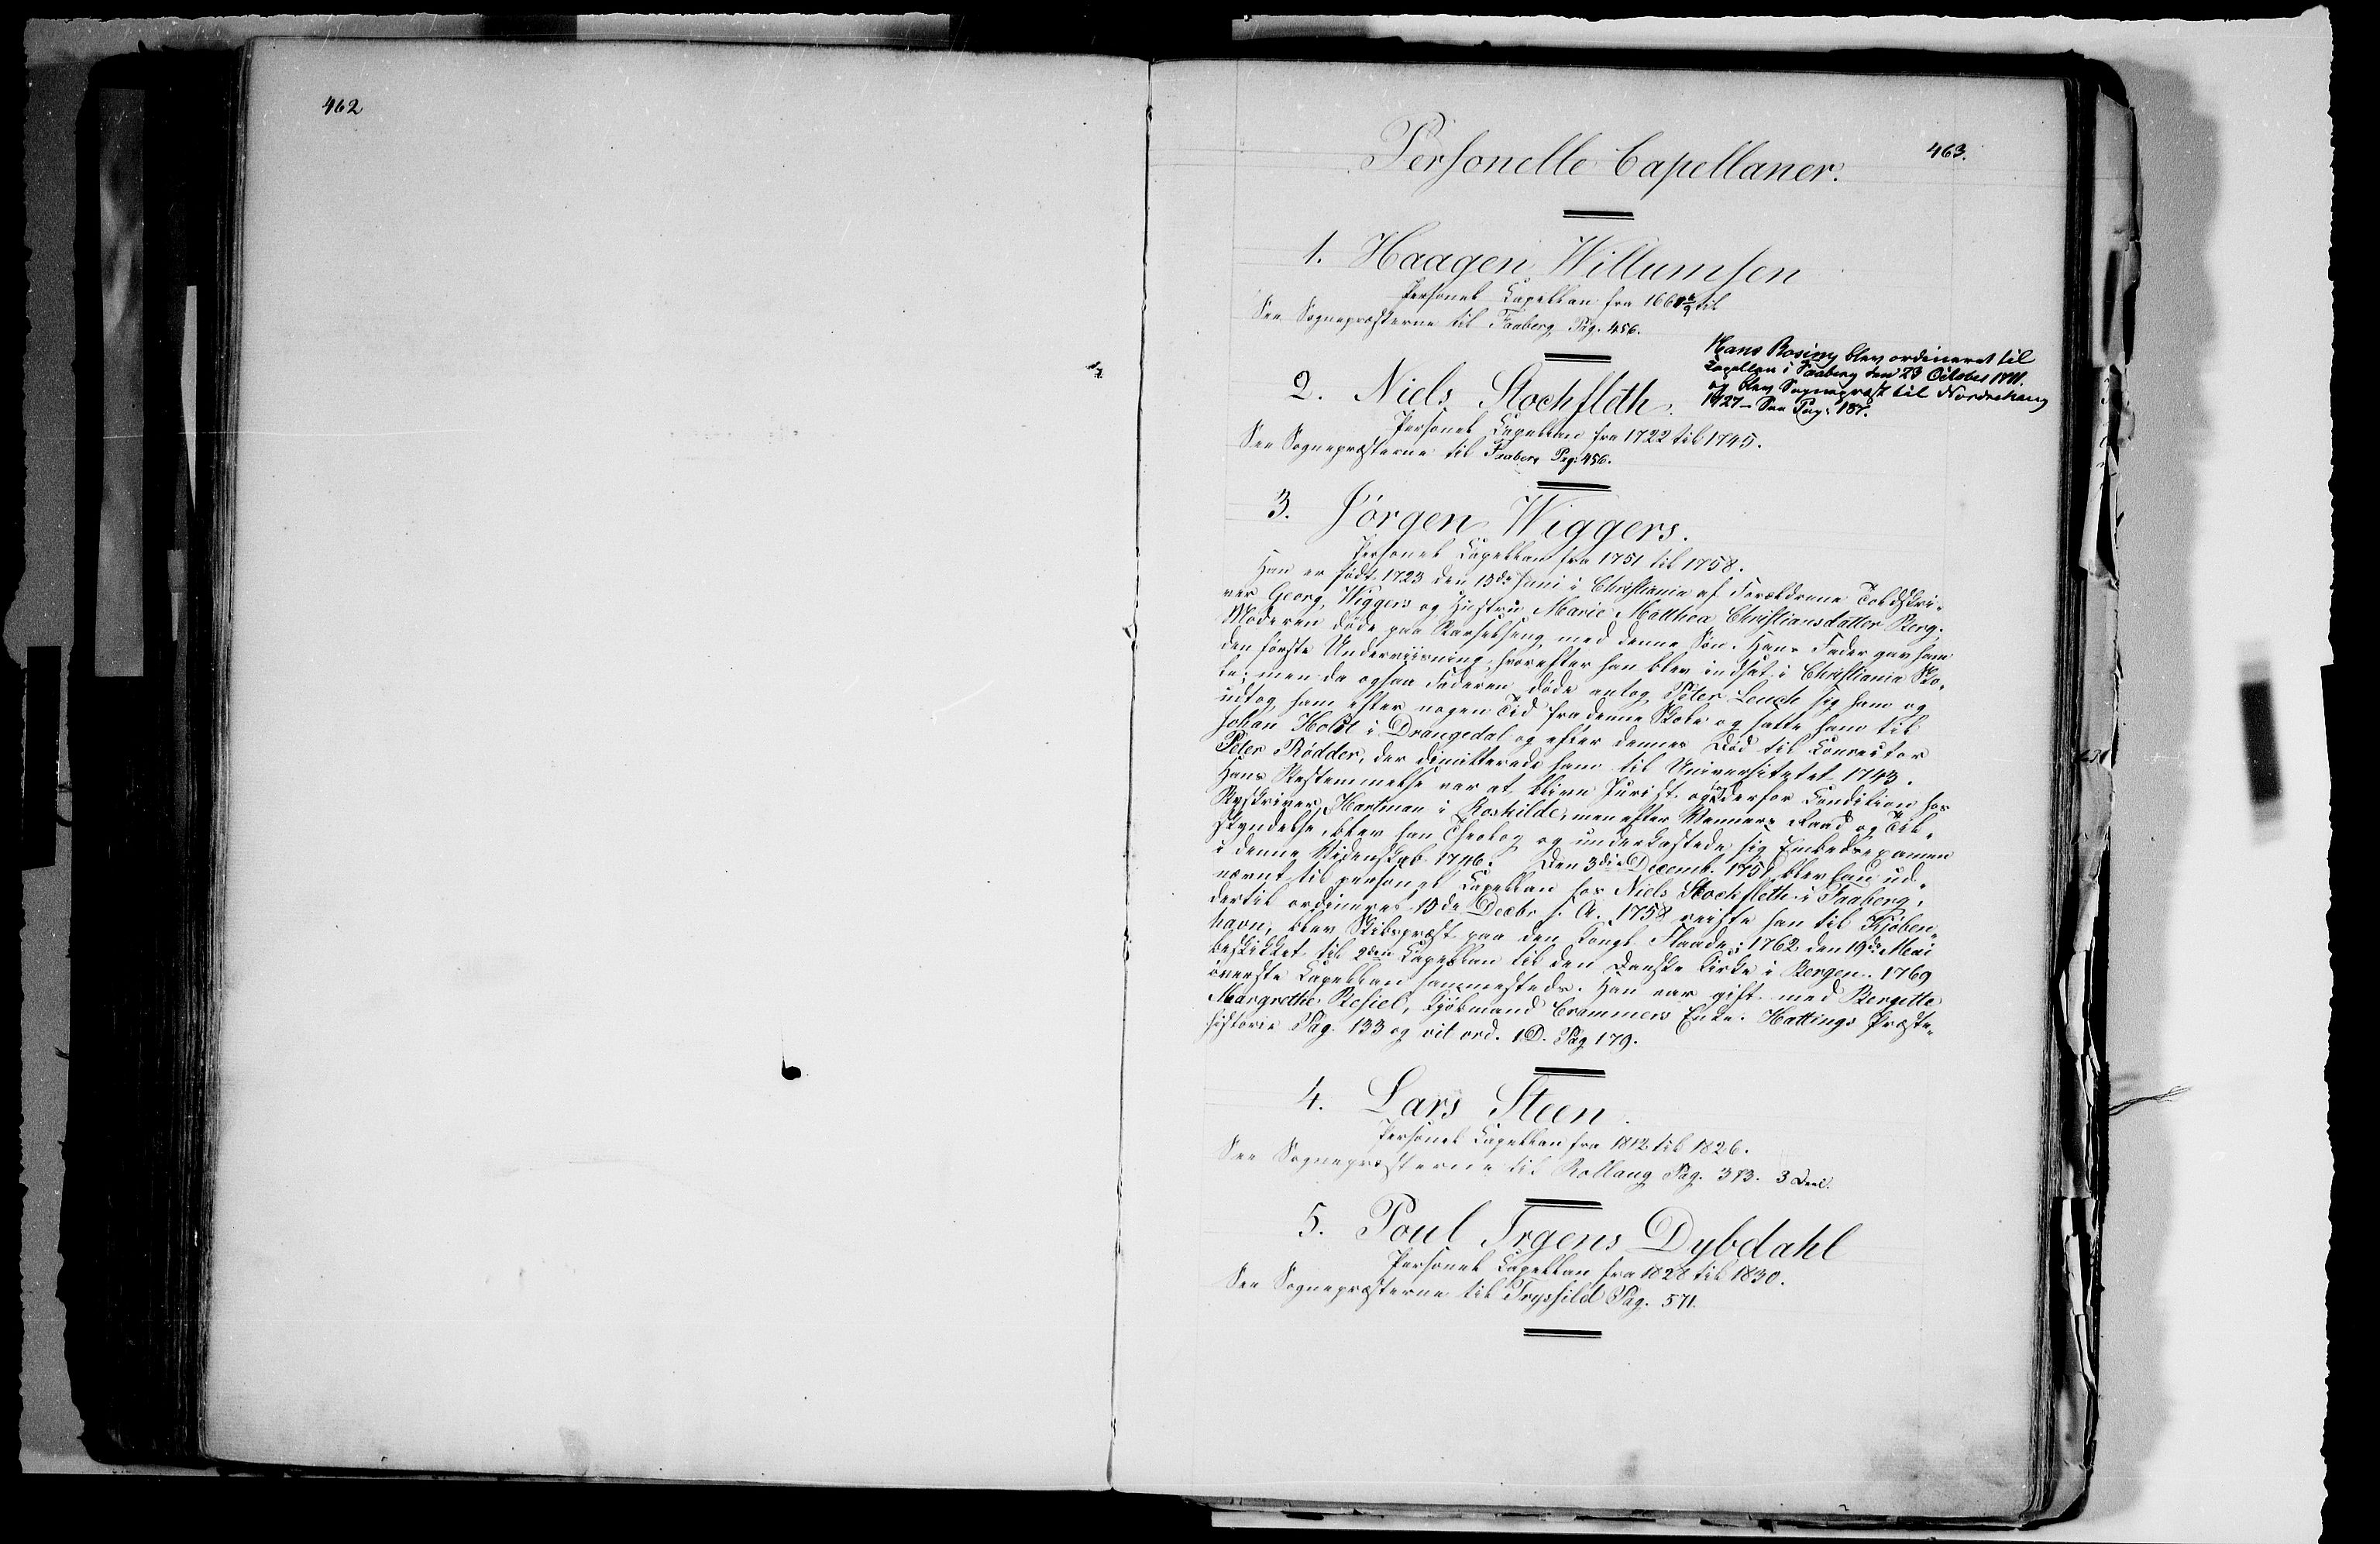 462
463.
Personelle Capellaner.
1. Haagen Willumsen
Personel Kapellan fra 166 til
See Sognepræsterne til Faaberg Pag. 456.
Hans Rosing blev ordineret til
Kapellan i Faaberg den 23 October 1711.
og blev Sognepræst til Norderhaug
1727 – See Pag. 187.
2. Niels Stockfleth.
Personel Kapellan fra 1722 til 1745.
See Sognepræsterne til Faaberg Pag. 456.
3. Jörgen Wiggers.
Personel Kapellan fra 1751 til 1758.
Han er födt 1723 den 13de Juni i Christiania af Forældrene Toldskri-
ver Georg Wiggers og Hustru Marie Mathea Christiansdatter Berg.
Moderen döde paa Barselseng med denne Sön. Hans Fader gav ham
den förste Underviisning, hvorefter han blev indsat i Christiania Sko-
le; men da ogsaa Faderen döde antog Peter Leuch sig ham og
udtog ham efter nogen Tid fra denne Skole og satte ham til
Johan Holst i Drangedal og efter dennes Död til Conrector
Peter Rödder, der dimitterede ham til Universitetet 1743.
Hans Bestemmelse var at blive Jurist og tog derfor Condition hos
Byskriver Hartman i Roskilde, men efter Venners Raad og Til-
skyndelse, blev han Theolog og underkastede sig Embedsexamen
i denne Videnskab 1746. Den 3die Decemb. 1751 blev han ud-
nævnt til personel Kapellan hos Niels Stockfleth i Faaberg,
dertil ordineret 15de Decbr s. A. 1758 reiste han til Kjöben-
havn, blev Skibspræst paa den Kongl. Flaade; 1762 den 19de Mai
beskikket til 2den Kapellan til den Danske Kirke i Bergen. 1769
överste Kapellan sammesteds. Han var gift med Bergitte
Margrethe Resiel, Kjöbmand Crammers Enke. Hattings Præste-
historie Pag. 133 og vit ord. 1 D. Pag 179.
4. Lars Steen.
Personel Kapellan fra 1812 til 1826.
See Sognepræsterne til Rollaug Pag. 373. 3 Deel.
5. Poul Irgens Dybdahl
Personel Kapellan fra 1828 til 1830.
See Sognepræsterne til Trysild Pag. 571.